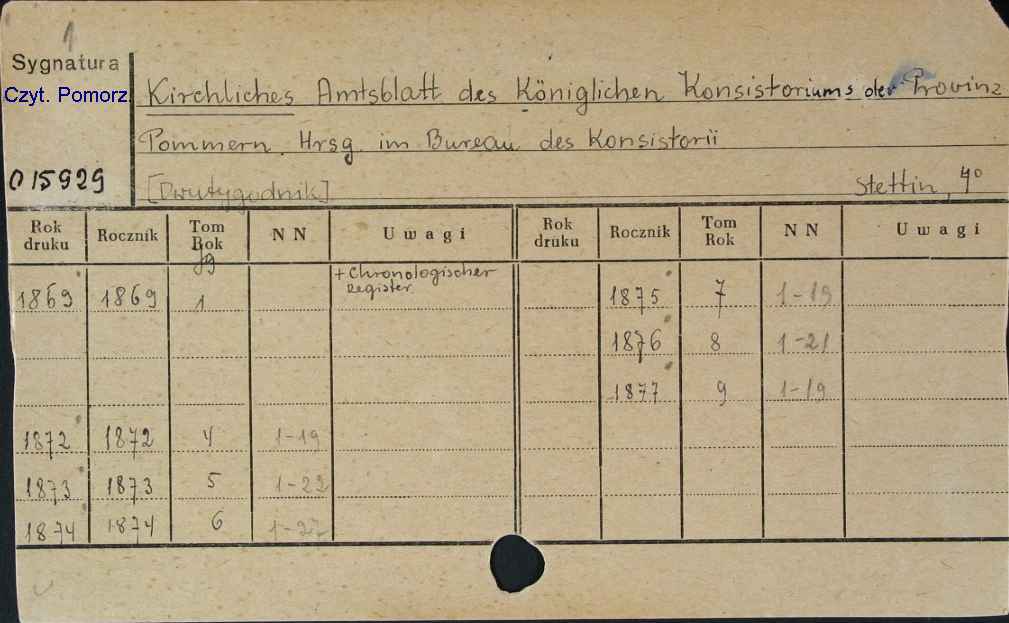 1
Sygnatura
Czyt. Pomorz.
Kirchliches Amtsblatt des Königlichen Konsistoriums der Provinz
Pommern. Hrsg. im Bureau des Konsistorii
015929
[Dwutygodnik] Stettin, 4°
Rok druku Rocznik Tom Rok Jg N N Uwagi Rok druku Rocznik Tom Rok N N Uwagi
1869 1869 1 + Chronologischer Register 1875 7 1-19
1876 8 1-21
1877 9 1-19
1872 1872 4 1-19
1873 1873 5 1-22
1874 1874 6